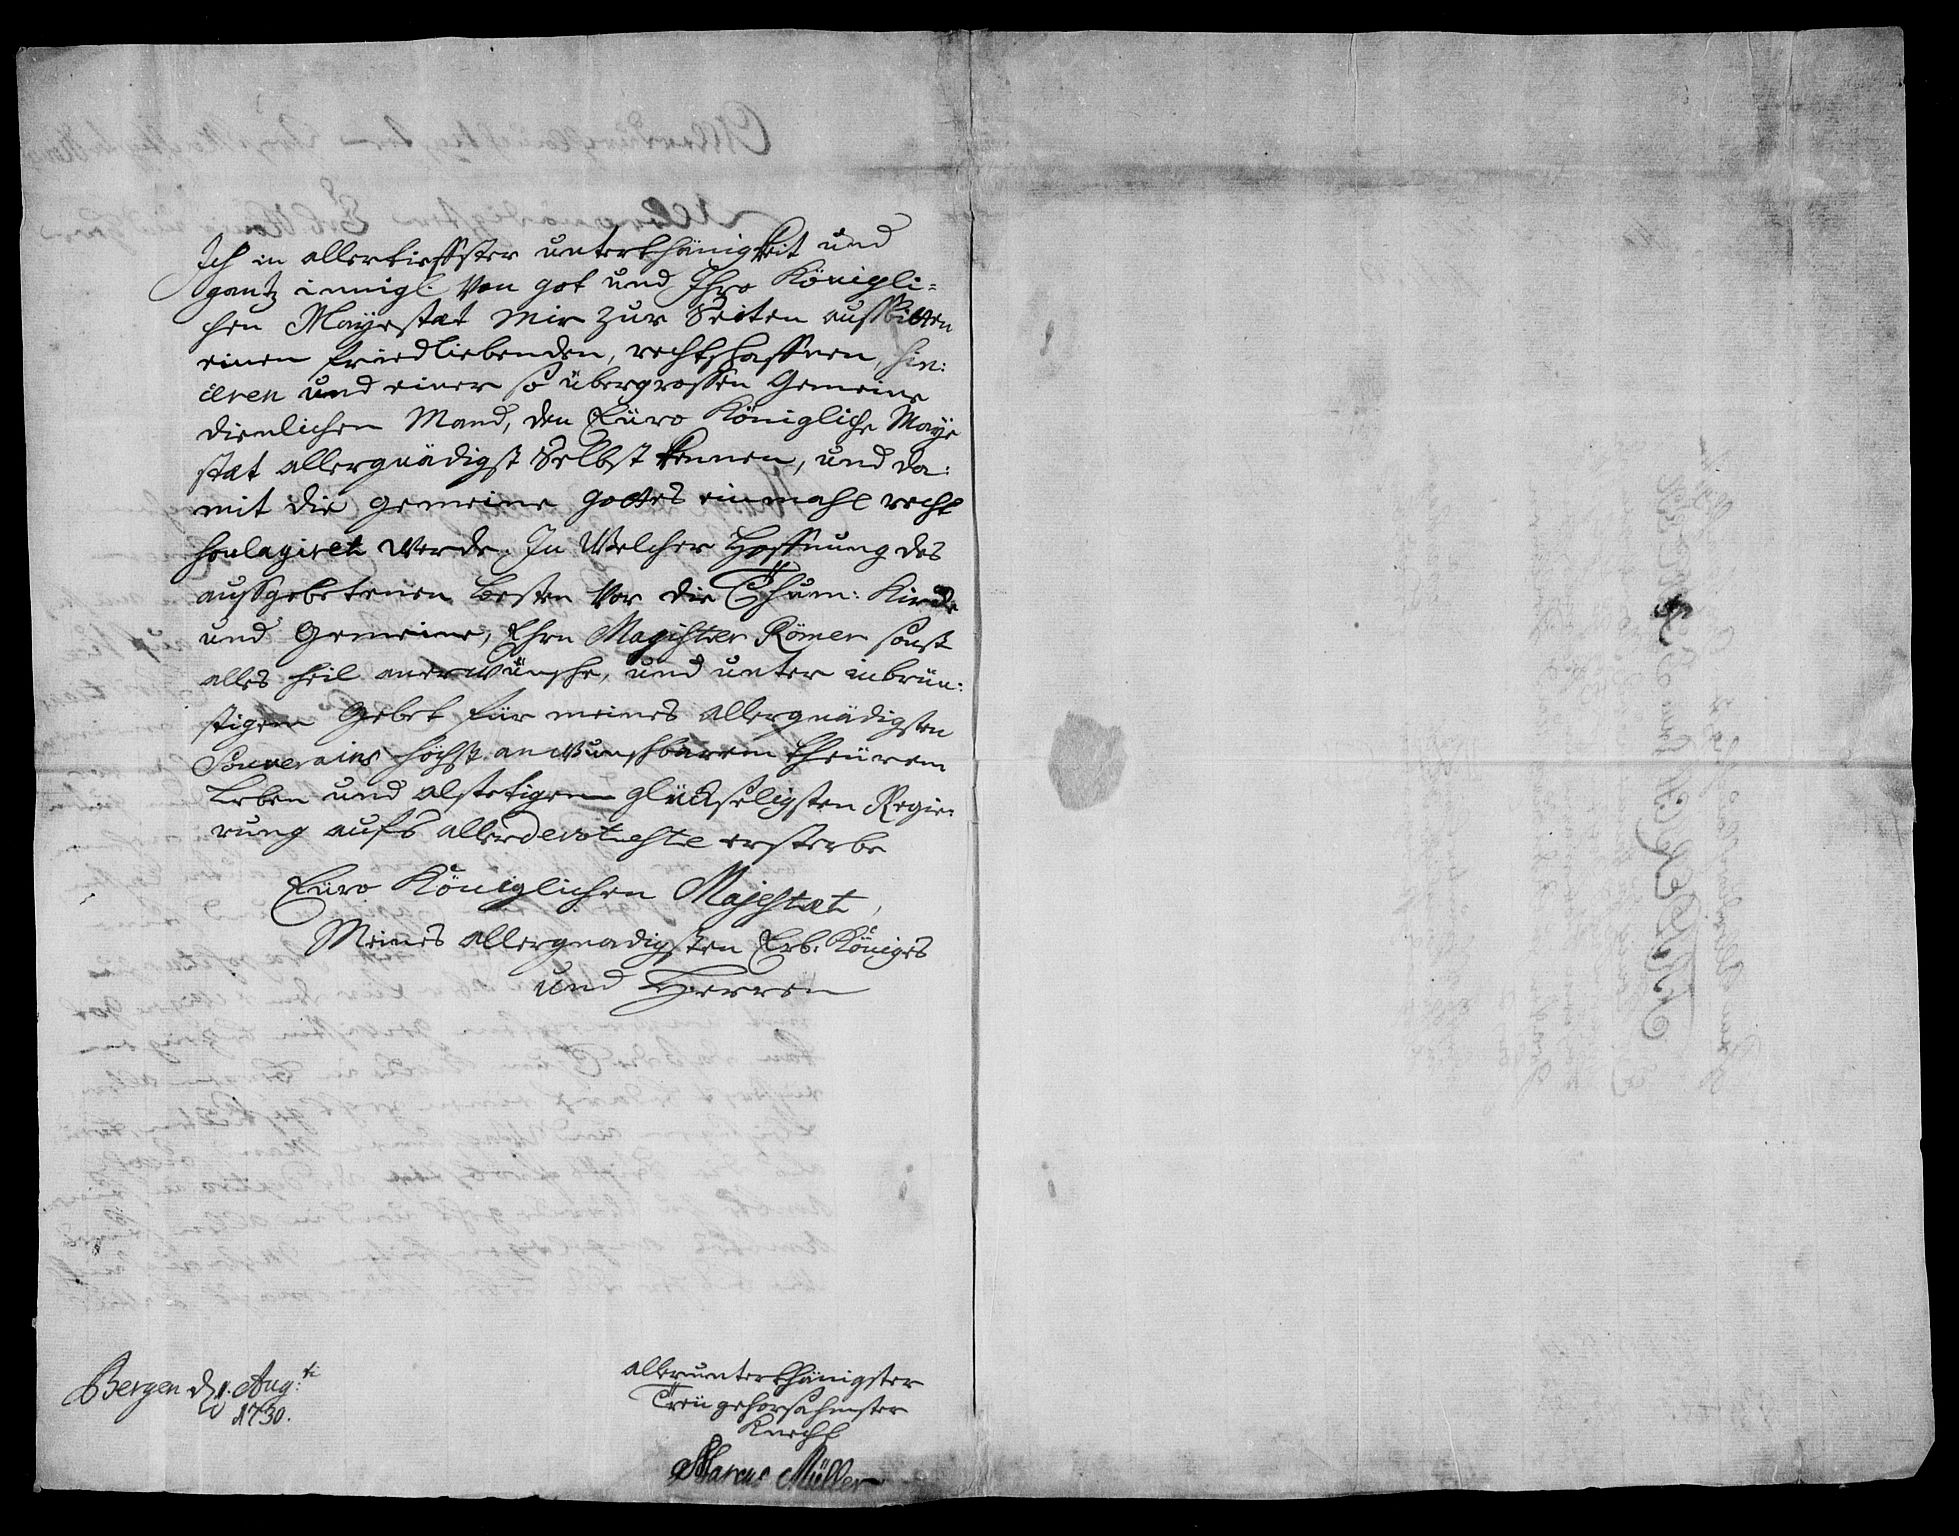 Ich in allertieffster unterthänigkeit und
gantz innigl. Von got und Ihro Königli=
chen Mayestæt Mir zur Seiten aussbitten
einen friedliebenden, rechtschaffnen,
und einer so übergrossen Gemeine
dienlichen Mand, den Eüro Königliche Maye
stæt allergnädigst Selbst kennen, und da:
mit die gemeine gottes einmahl recht
soulagiret werde. In Welcher Hoffnung des
aussgebetenen besten Vor die Thum: Kirche
und Gemeine, Ehrn Magister Römer sonst
alles heil anerwünsche, und unter inbrün:
stigem Gebet für meines allergnädigsten
Souverains höchst anwunschbarem theürem
Leben und alstetigen glückseligsten Regie:
rung aufs allerdevoteste ersterbe
Eüro Königlichen Majestæt,
Meines allergnadigsten Erb. Königes
und Herren
Bergen d. 1. Aug:ti
1730.
allerunterthänigster
Treügehorsahmster
Knecht
Marcus Müller